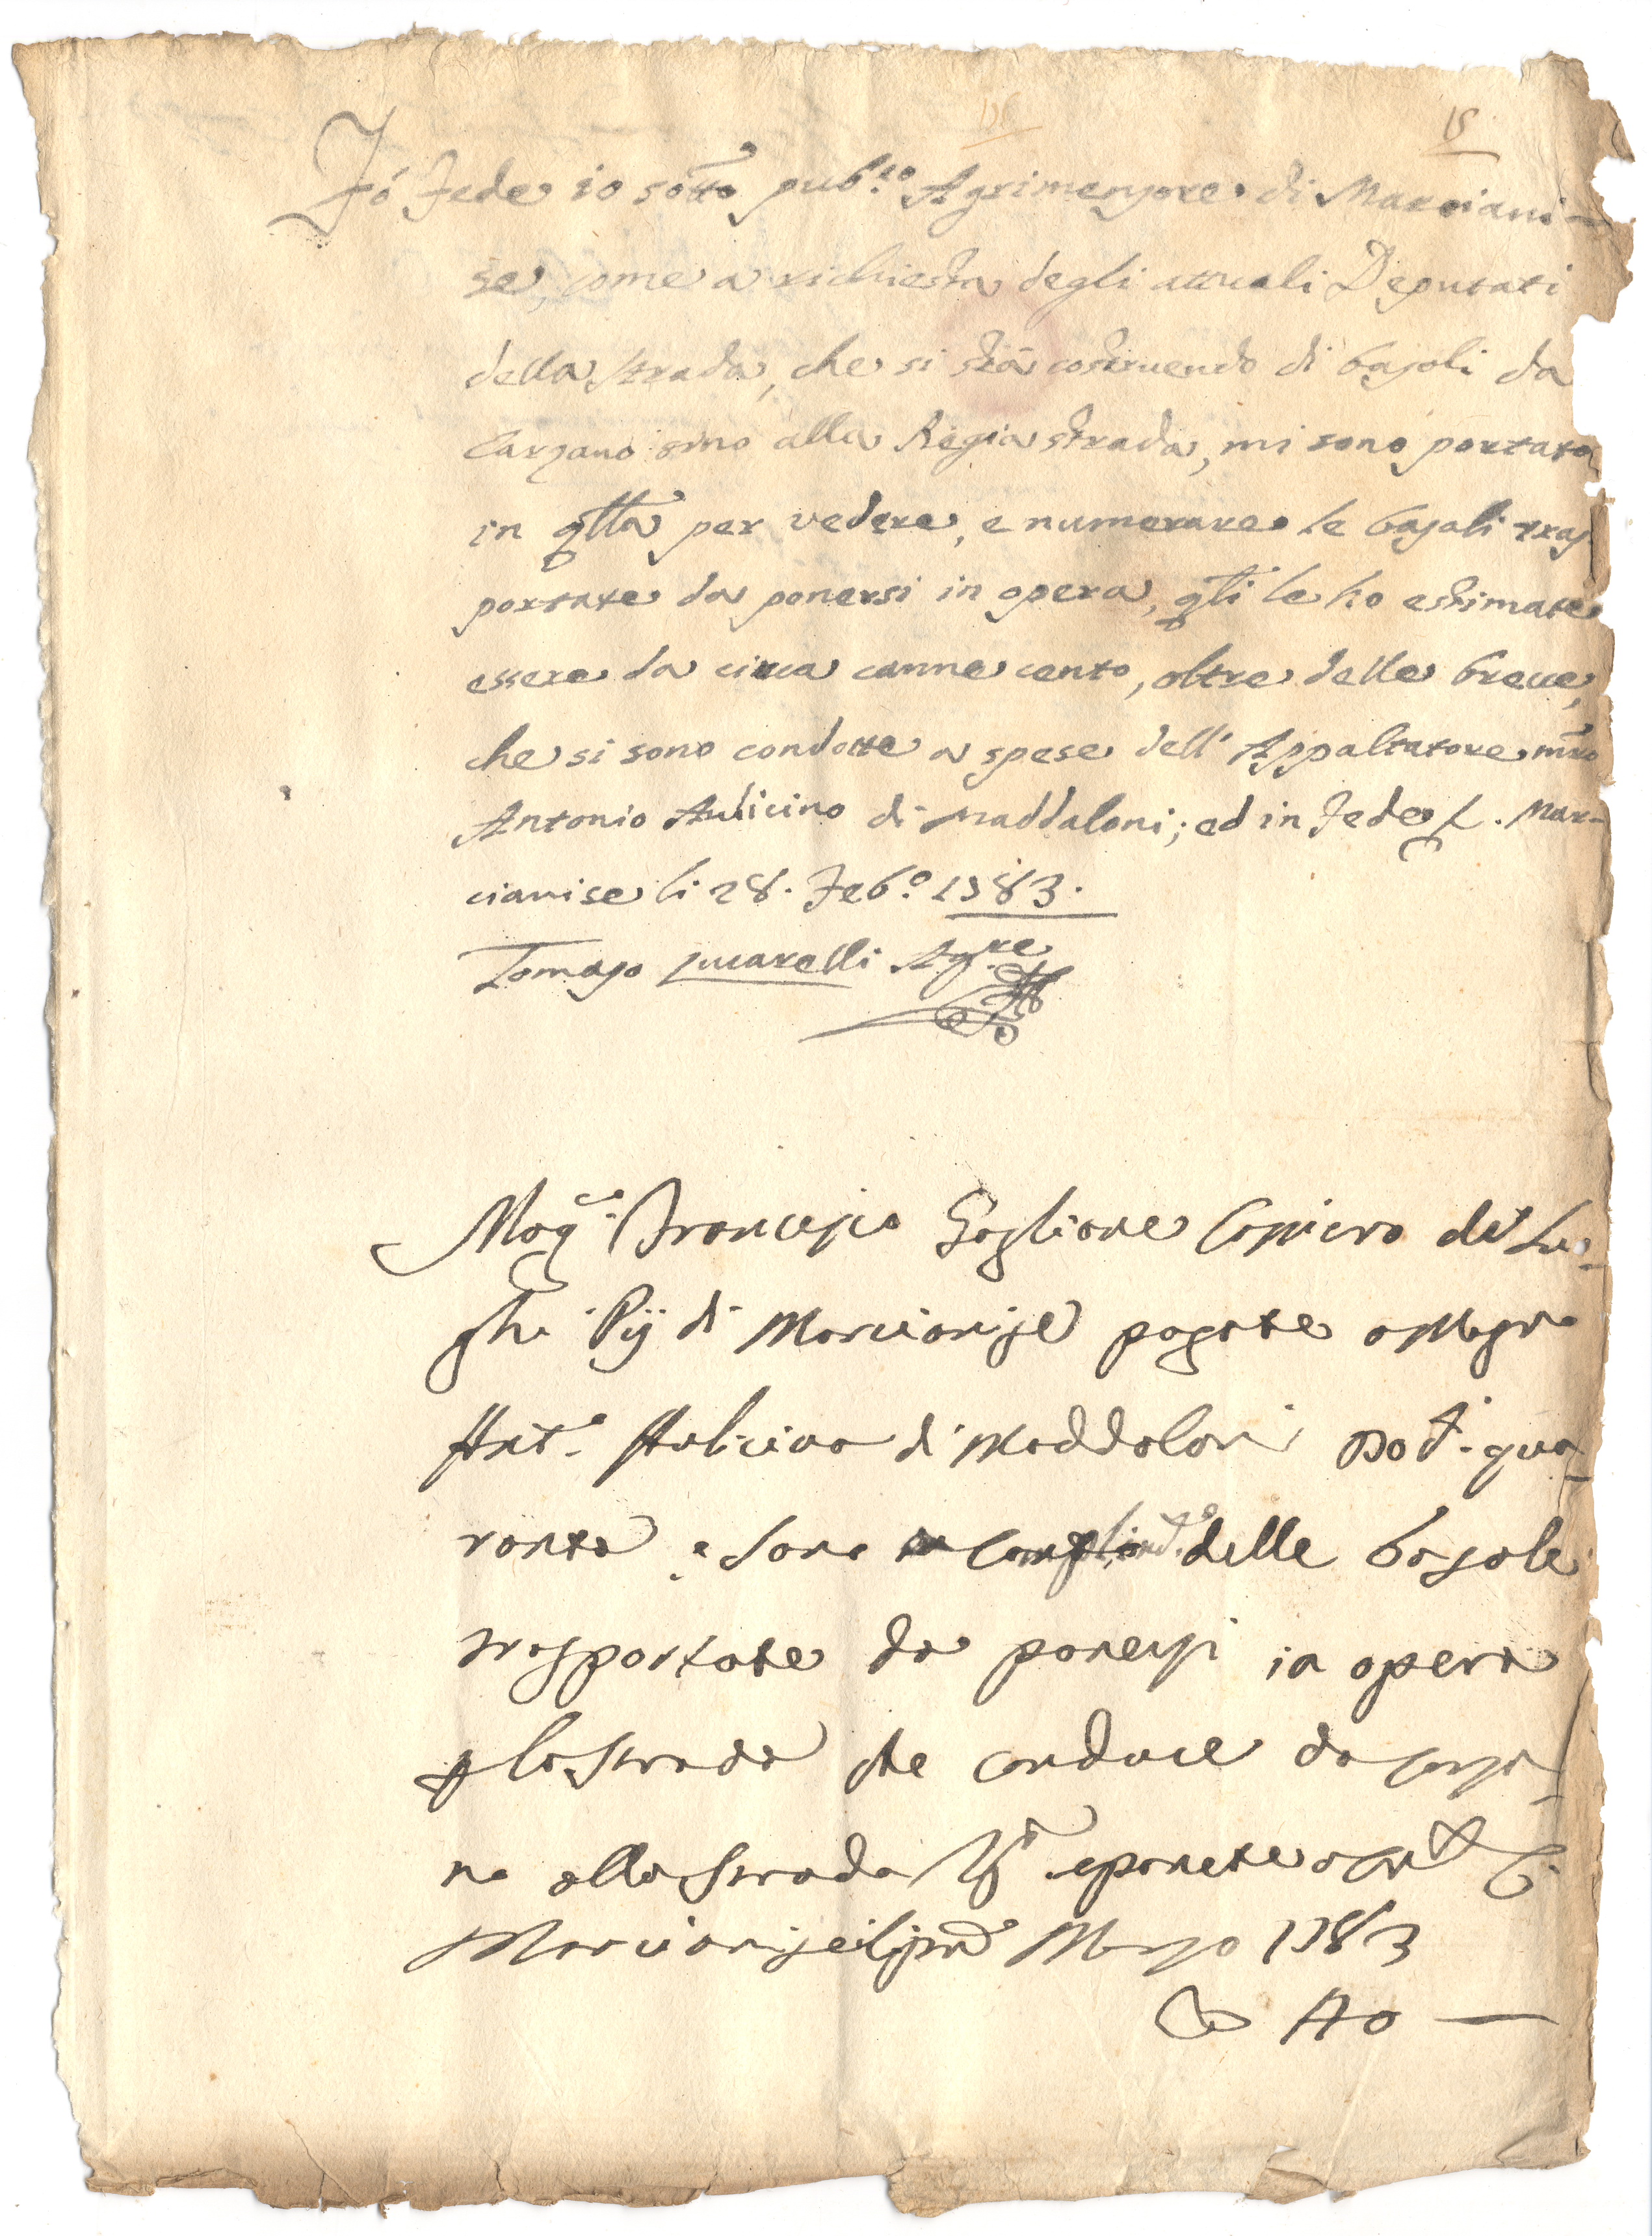 15
Fó Fede io sotto pub.co Agrimensore di Marciani-
se, come a richiesta degli attuali Deputati
della strada, che si stà costruendo di basoli da
Carzano sino alla Regia strada, mi sono portato
in qlla per vedere, e numerare le basoli tras
portate da ponersi in opera, qli le ho estimate
essere da circa canne cento, oltre delle brecce,
che si sono condotte a spese dell' Appaltatore mro
Antonio Aulicino di Maddaloni; ed in fede &. Mar-
cianise li 28. Feb.o 1783.
Tomaso Lucarelli Ag.re
Mag.co Francesco Foglione Cassiero de Luo-
ghi Pij di Marcianise pagate a Mastro
Ant.o Aulicino di Maddaloni Doc.ti qua-
ranta e sono delle basole
trasportate da ponersi in opera
p la strada che conduce da Carza-
no alla strada Ra e ponete a
Marcianise li pmo Marzo 1783
D 40 —